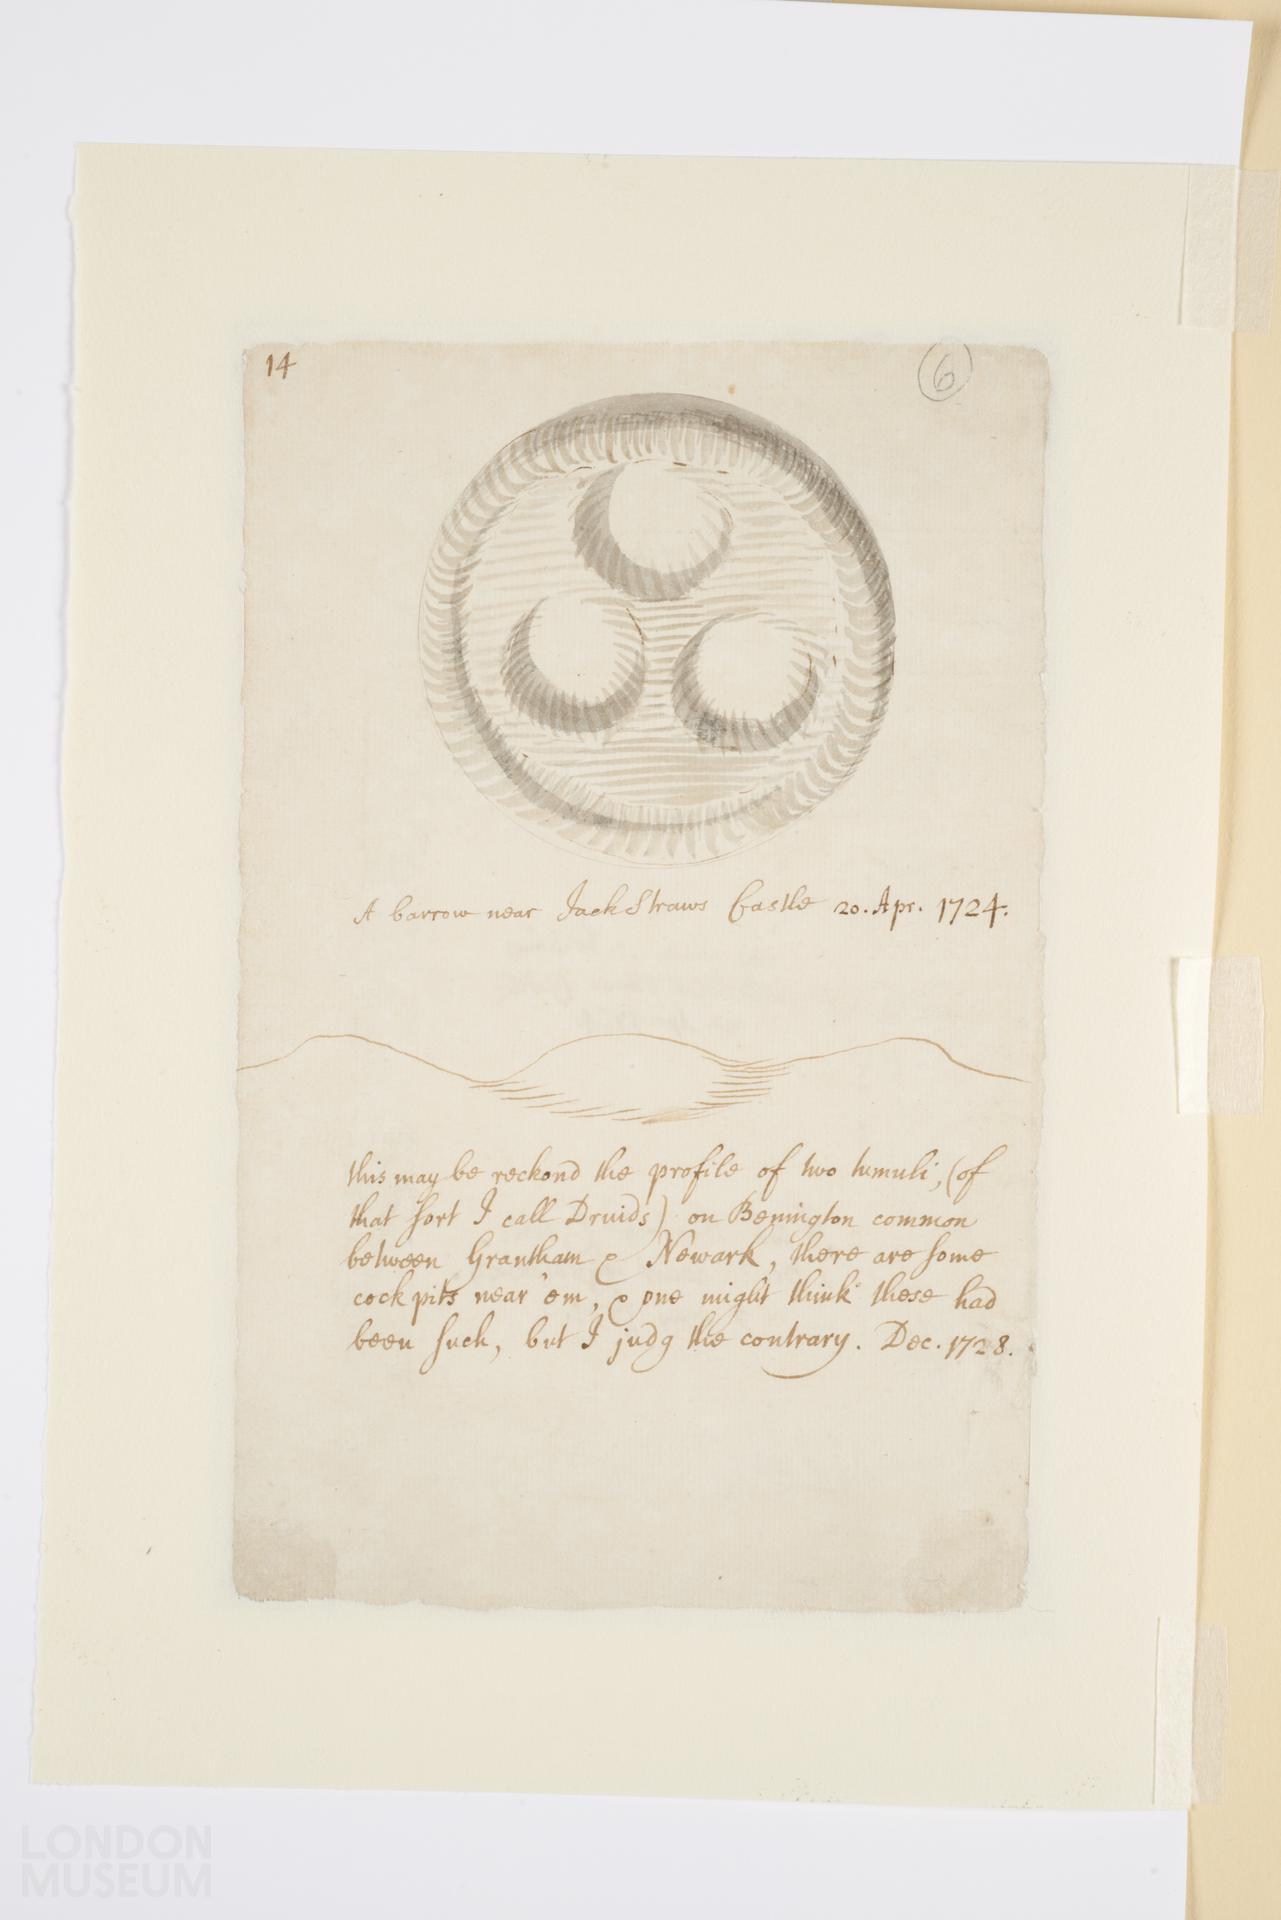 14
6
A barrow near Jack Straws Castle 20. Apr. 1724.
this may be reckond the profile of two tumuli, (of
that sort I call Druids) on Benington common
between Grantham & Newark, there are some
cock pits near 'em, & one might think these had
been such, but I judg the contrary. Dec. 1728.
LONDON
MUSEUM